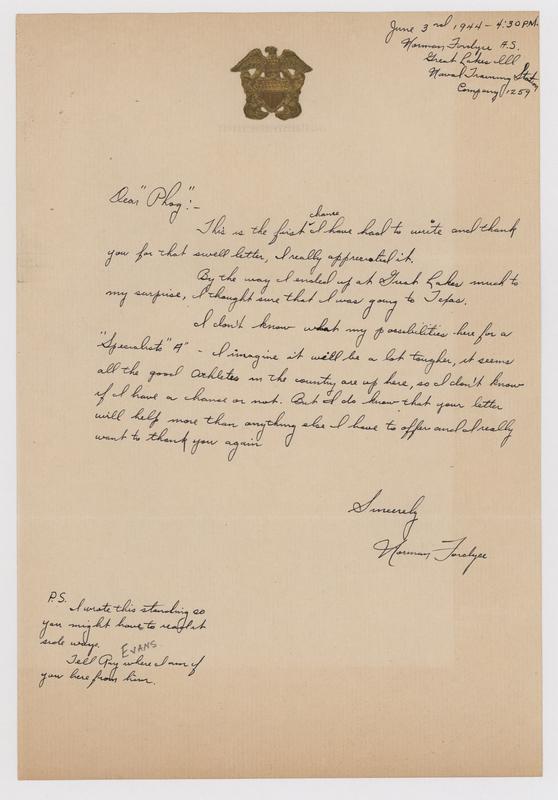 June 3rd, 1944 - 4:30 P.M.
Norman Fordyce A.S.
Great Lakes Ill
Naval Training Station
Company 1259
Dear "Phog":-
chance
This is the first I have had to write and thank
you for that swell letter, I really appreciated it.
By the way I ended up at Great Lakes much to
my surprise, I thought sure that I was going to Texas.
I don't know what my possibilities here for a
"Specialists" "A" - I imagine it will be a lot tougher, it seems
all the good athletes in the country are up here, so I don't know
if I have a chance or not. But I do know that your letter
will help more than anything else I have to offer and I really
want to thank you again
Sincerely
Norman Fordyce
P.S.
I wrote this standing so
you might have to read it
side ways.
EVANS
Tell Ray where I am if
you here from him.